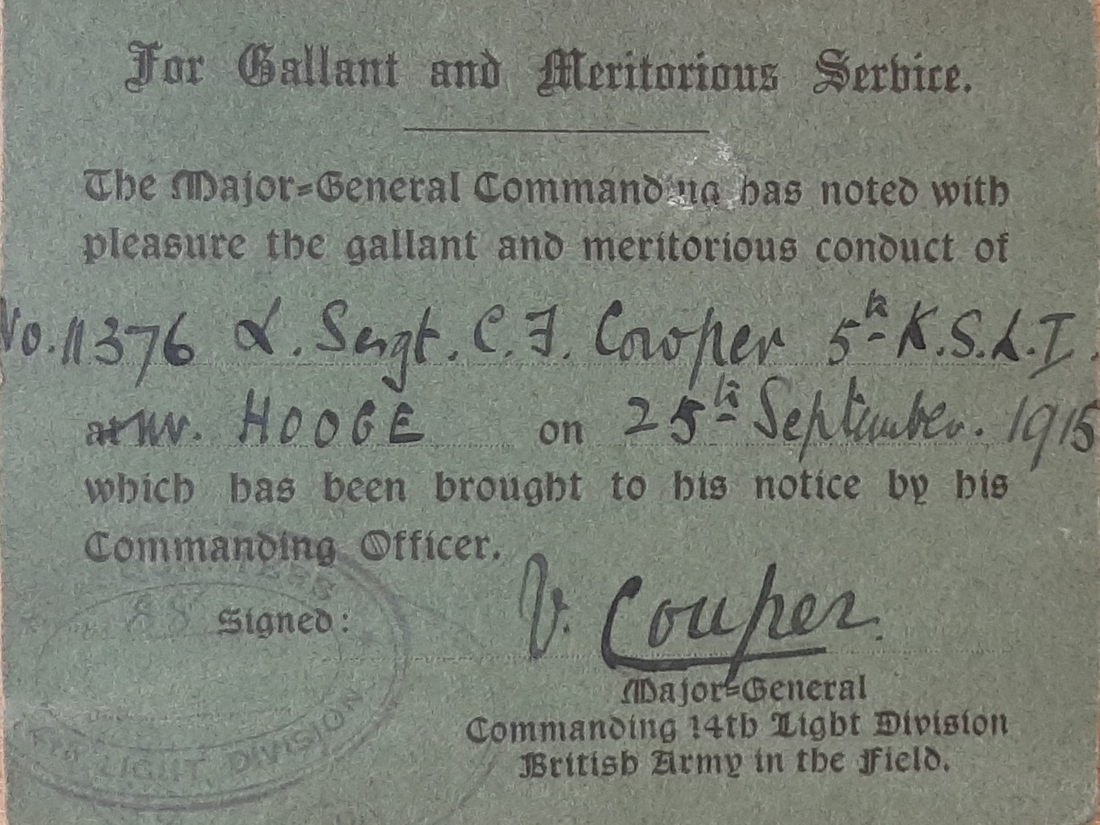 For Gallant and Meritorious Service.
The Major-General Commanding has noted with
pleasure the gallant and meritorious conduct of
No. 11376 L. Sergt. C. F. Cowper 5th K.S.L.I.
at nr. HOOGE on 25th September. 1915
which has been brought to his notice by his
Commanding Officer.
Signed: V. Couper
Major-General
Commanding 14th Light Division
British Army in the Field.
LIGHT DIVISION